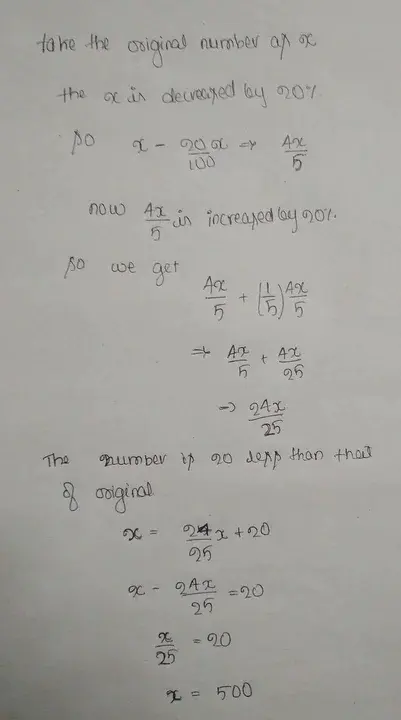 take the original number as x
the x is decreased by 20%
so x - 20/100 x ⇒ 4x/5
now 4x/5 is increased by 20%.
so we get
4x/5 + (1/5) 4x/5
⇒ 4x/5 + 4x/25
→ 24x/25
The number is 20 less than that
of original
x = 24/25 x + 20
x - 24x/25 = 20
x/25 = 20
x = 500